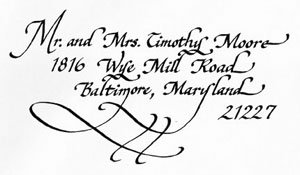 Mr. and Mrs. Timothy Moore
1816 Wye Mill Road
Baltimore, Maryland
21227